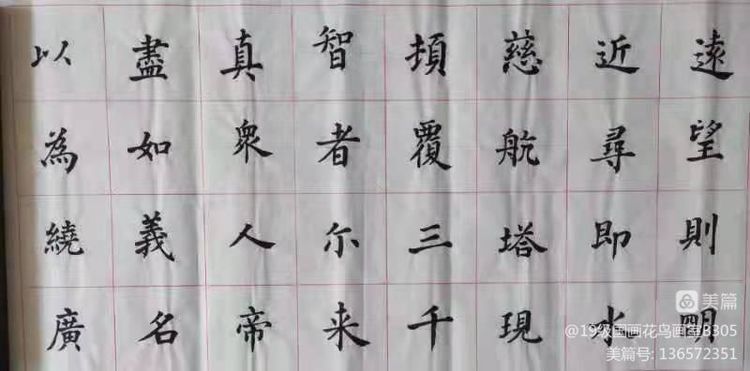 遠望則明
近尋即水
慈航塔現
頂覆三千
智者尔来
真衆人帝
盡如義名
以為繞廣
美篇
@19级国画花鸟画室B305
美篇号: 136572351